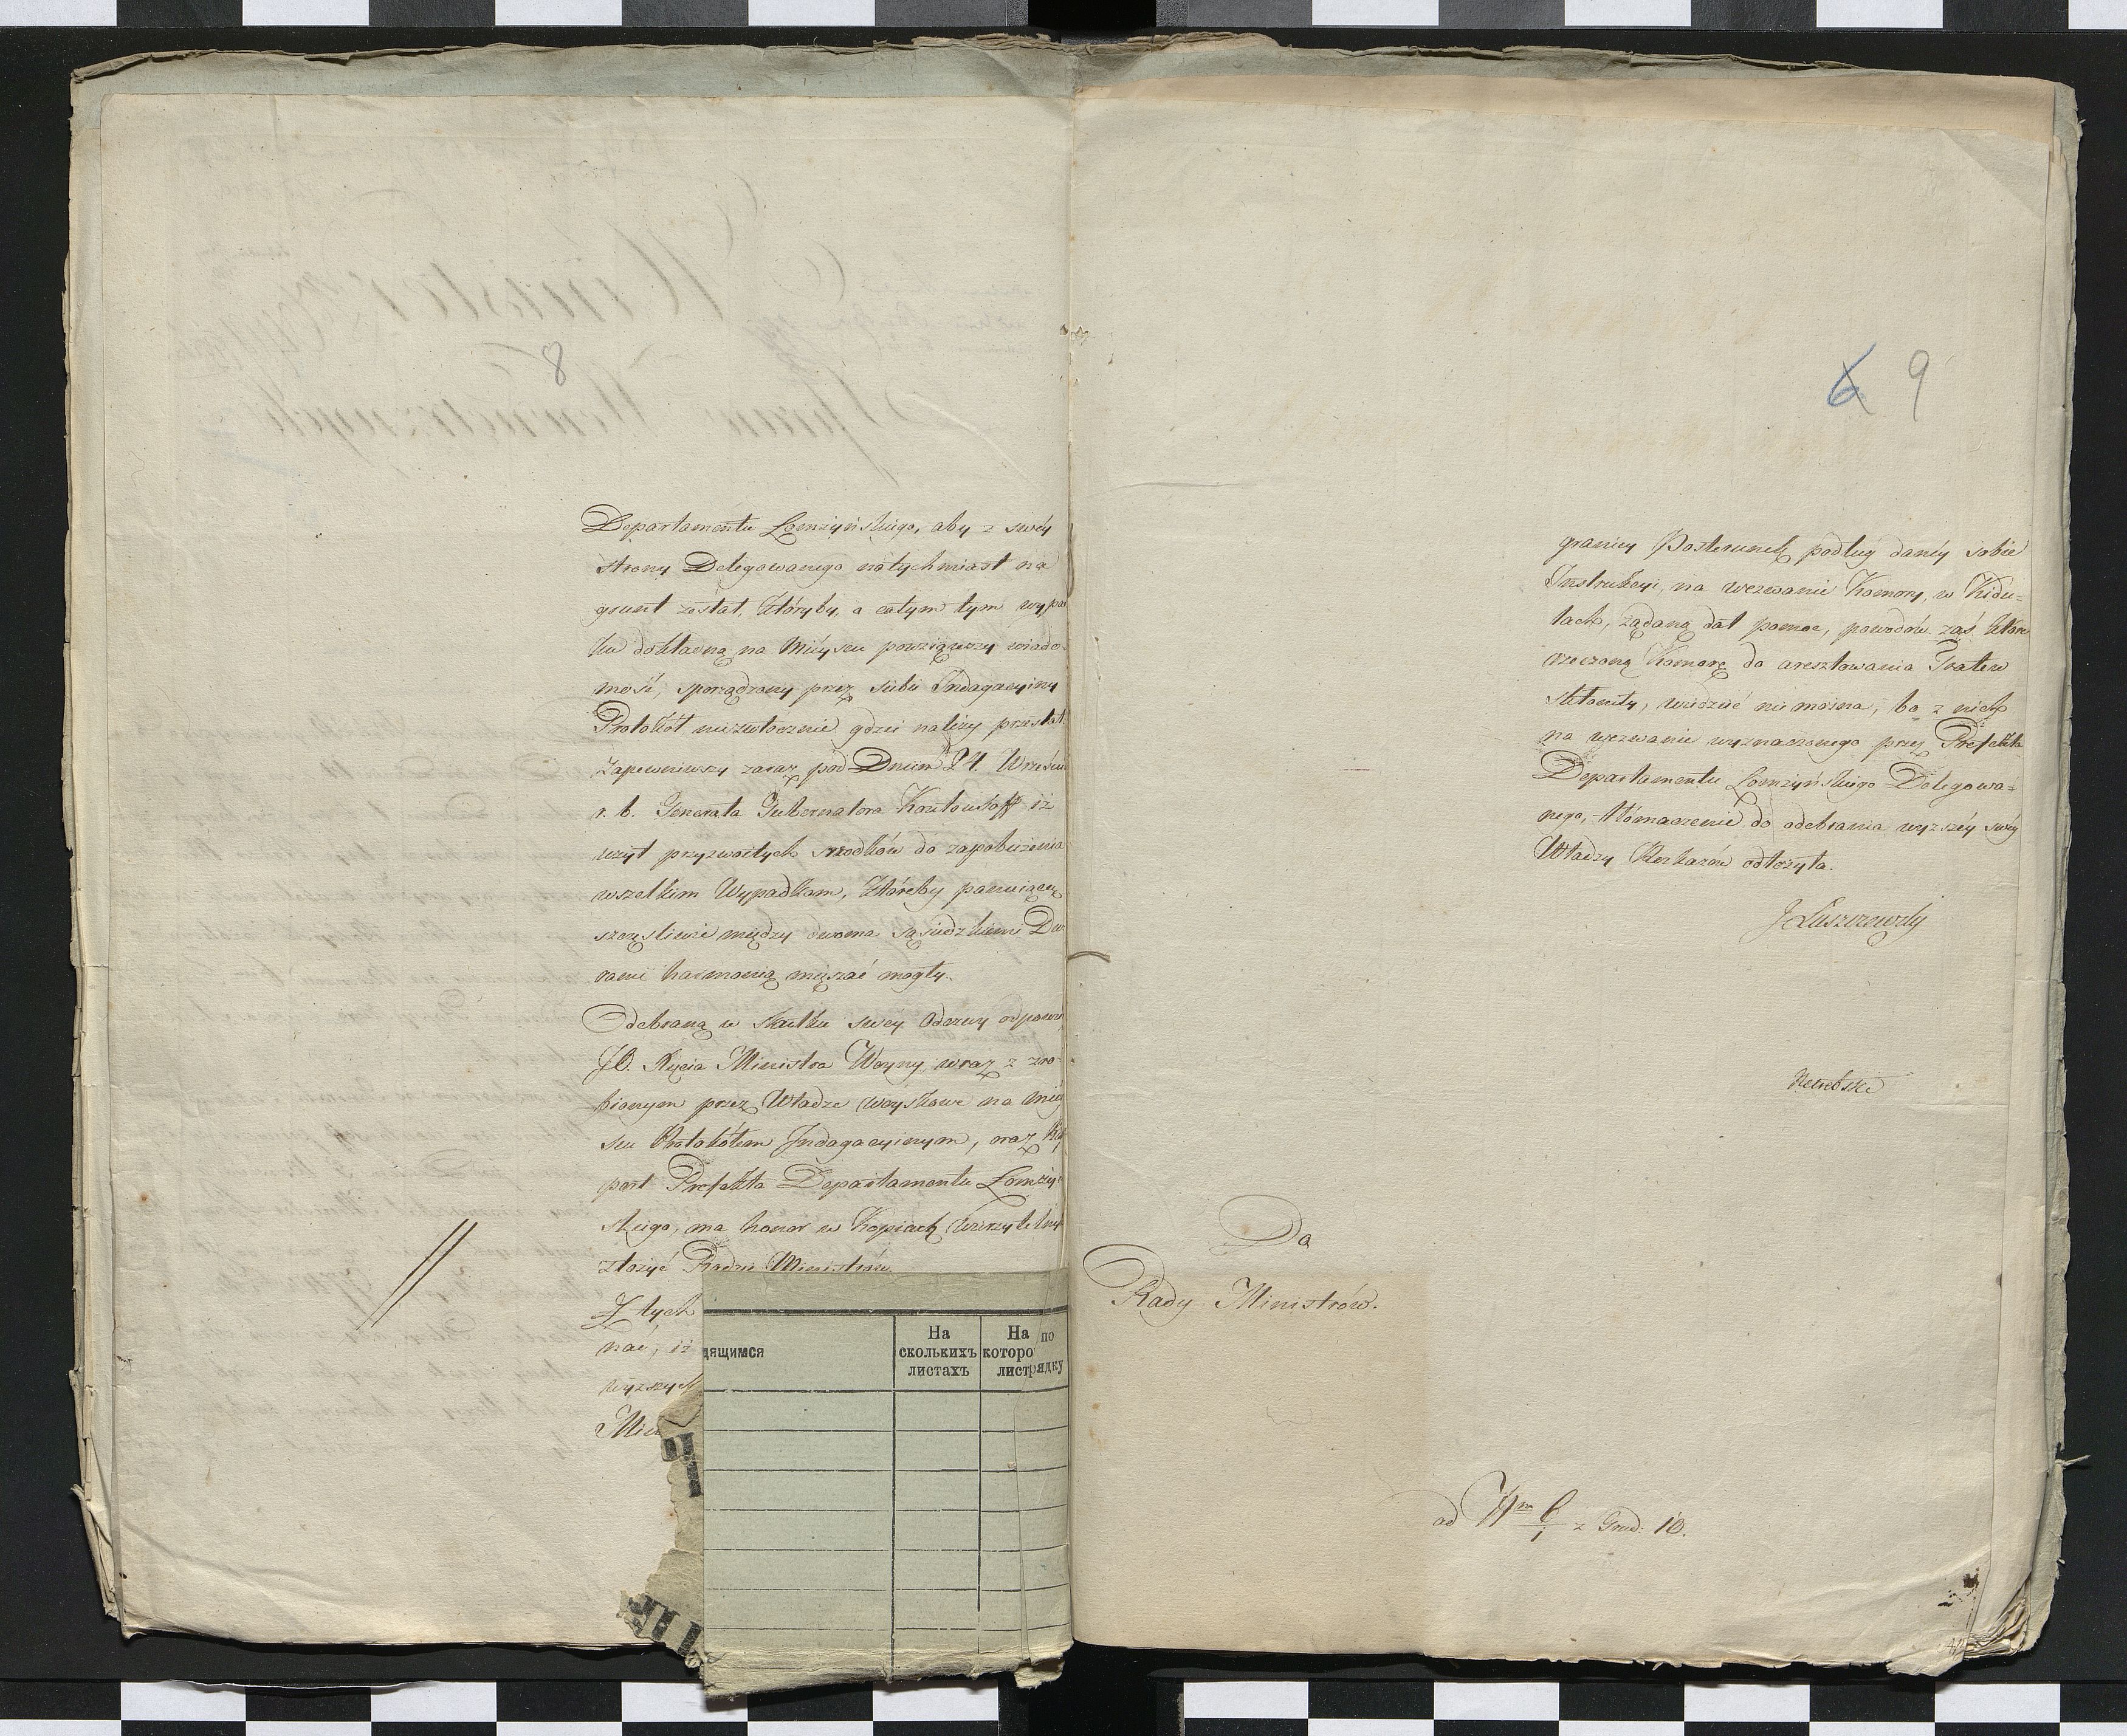 8
Departamentu Łomżyńskiego, aby z swéy
strony Delegowanego natychmiast na
grunt zesłał, któryby, o całym tym wypad
ku dokładną na Miéyscu powziąwszy wiado-
mość, sporządzony przez siebie Indagacyiny
Protokół niezwłocznie gdzie należy przesłał.
Zapewniwszy zaraz pod Dniem 24. Wrześni
r. b. Generała Gubernatora iż
użył przyzwoitych srzodków do zapobieżenia
wszelkim Wypadkom, któreby panuiącą
szczęśliwie między dwoma Sąsiedzkiemi Dwo
rami harmonią mięszać mogły.
Odebraną w skutku swey Odezwy odpowie
JO. Xięcia Ministra Woyny, wraz z zro-
bionym przez Władze Woyskowe na Miéy
scu Protokółem Indagacyinym, oraz Ra
port Prefekta Departamentu Łomżyń
skiego, ma honor w Kopiach Wierzytelnych
złożyć Radzie Ministrów.
Z tych
nać, iż
wyższych
Mie
дящимся
На
сколькихъ
листахъ
На
которо
лист
по
рядку
6 9
granicy Posterunek podług danéy sobie
Instrukcyi, na wezwanie Komory, w Kidu-
łach, żądaną dał pomoc, powodów zaś które
rzeczoną Komorę do aresztowania Tratew
skłoniły, wiedzieć nie można, bo z nich
na wezwanie wyznaczonego przez Prefekta
Departamentu Łomżyńskiego Delegowa-
nego, tłómaczenie do odebrania wyższéy swéy
Władzy Rozkazów odłożyła.
J Łuszczewski
Netrebski
Do
Rady Ministrów.
ad z Grud: 10.